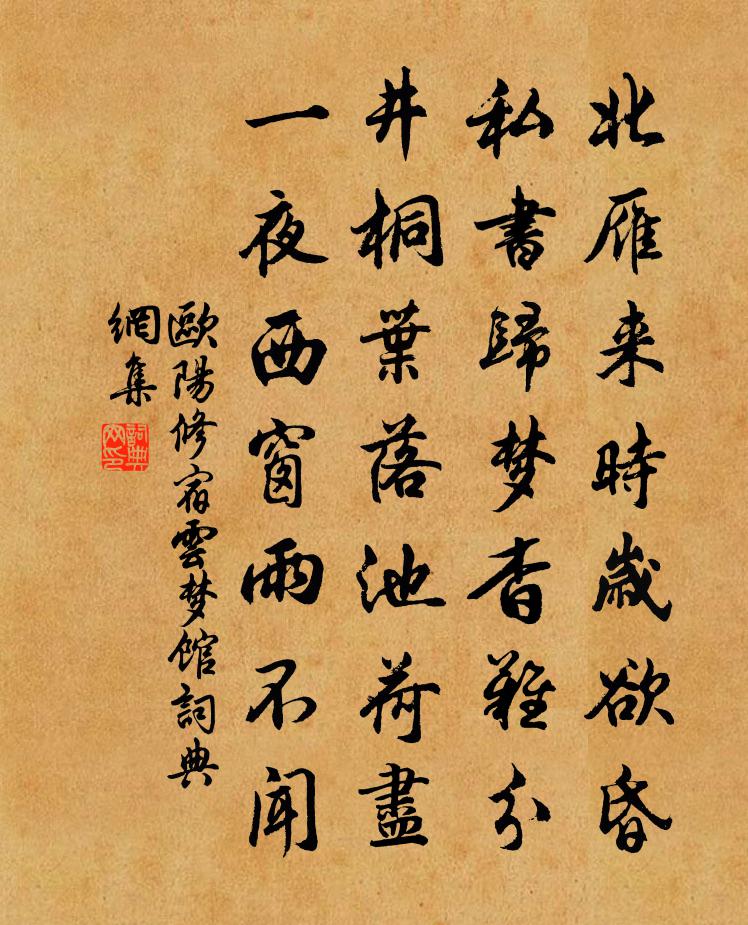 北雁来時歲欲昏
私書歸梦杳難分
井桐葉落池荷盡
一夜西窗雨不聞
歐陽修宿雲梦館詞典
網集
詞典
网印